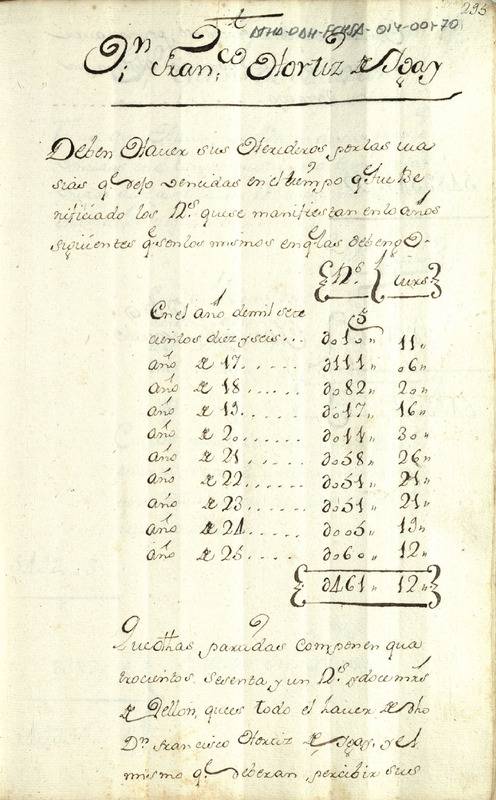 295
ATHA-DAH-FCHSA-014-001-70
Dn. Franco. Hortiz de Igay
Deben Haver sus Herederos por las
qe. dejo vencidas en el tiempo qe. fue Be
nificiado los Rs. que se manifiestan en los años
siguientes qe. son los mismos en qe. las debengo.
Rs. mrs.
En el año de mil sete
cientos diez y seis... do1o " 11 "
año de 17...... d111 " o6 "
año de 18...... do82 " 2o "
año de 19...... do17 " 16 "
año de 2o...... do14 " 3o "
año de 21...... do58 " 26 "
año de 22..... do51 " 21 "
año de 23..... do51 " 21 "
año de 24..... doo5 " 19 "
año de 25..... do6o " 12 "
d461 " 12 "
Que dhas partidas componen qua
trocientos sesenta y un Rs. y doce mrs
de Vellon, que es todo el haver de dho
Dn. Francisco Hortiz de Igay, y el
mismo qe. deberan percibir sus